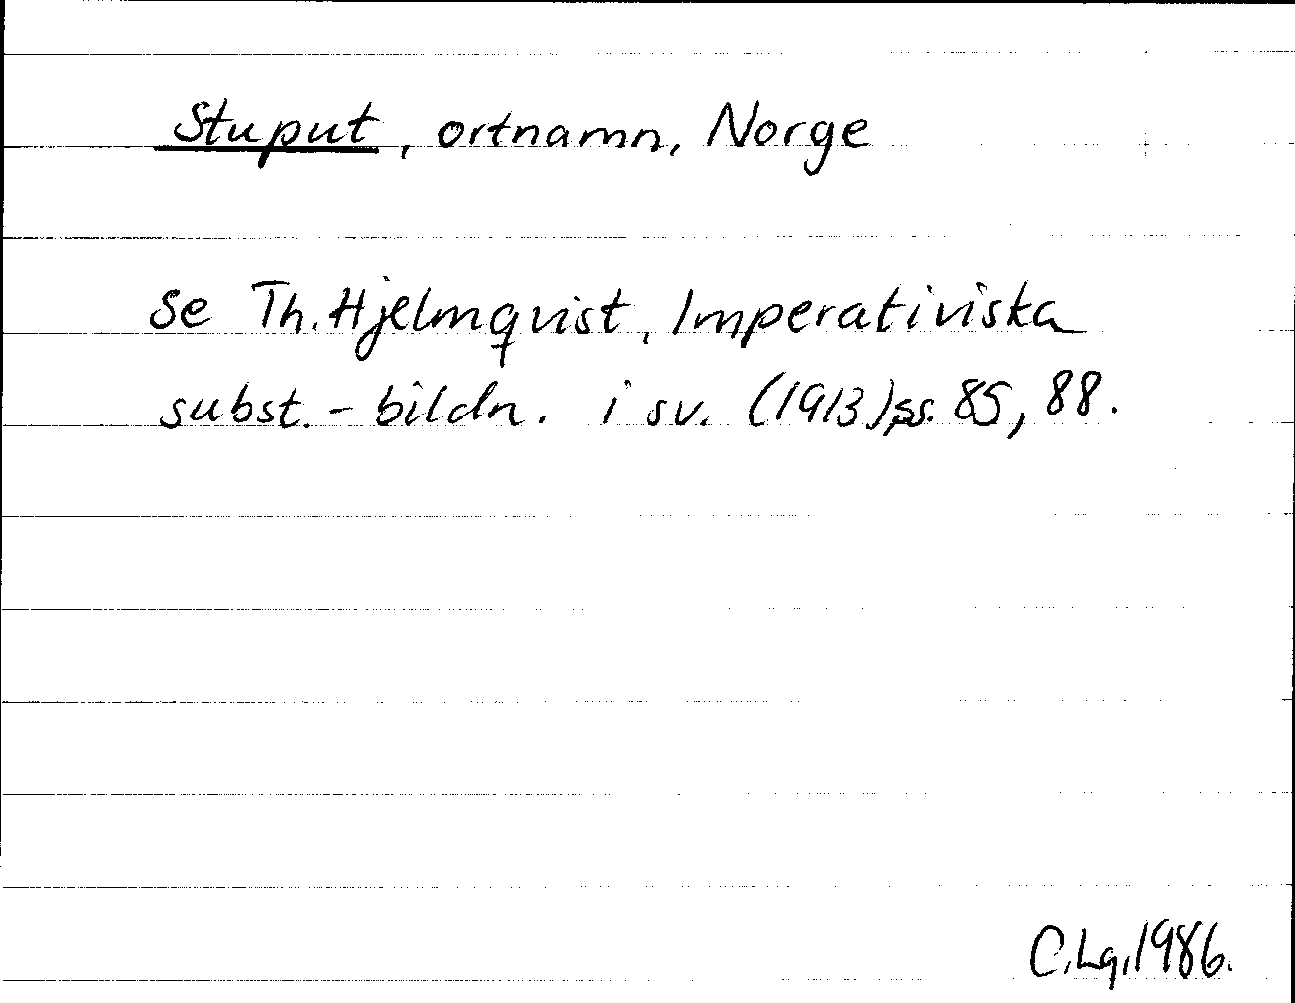 Stuput, ortnamn, Norge
se Th. Hjelmqvist, Imperativiska
subst.-bildn. i sv. (1913) ss. 85, 88.
C.Lg. 1986.